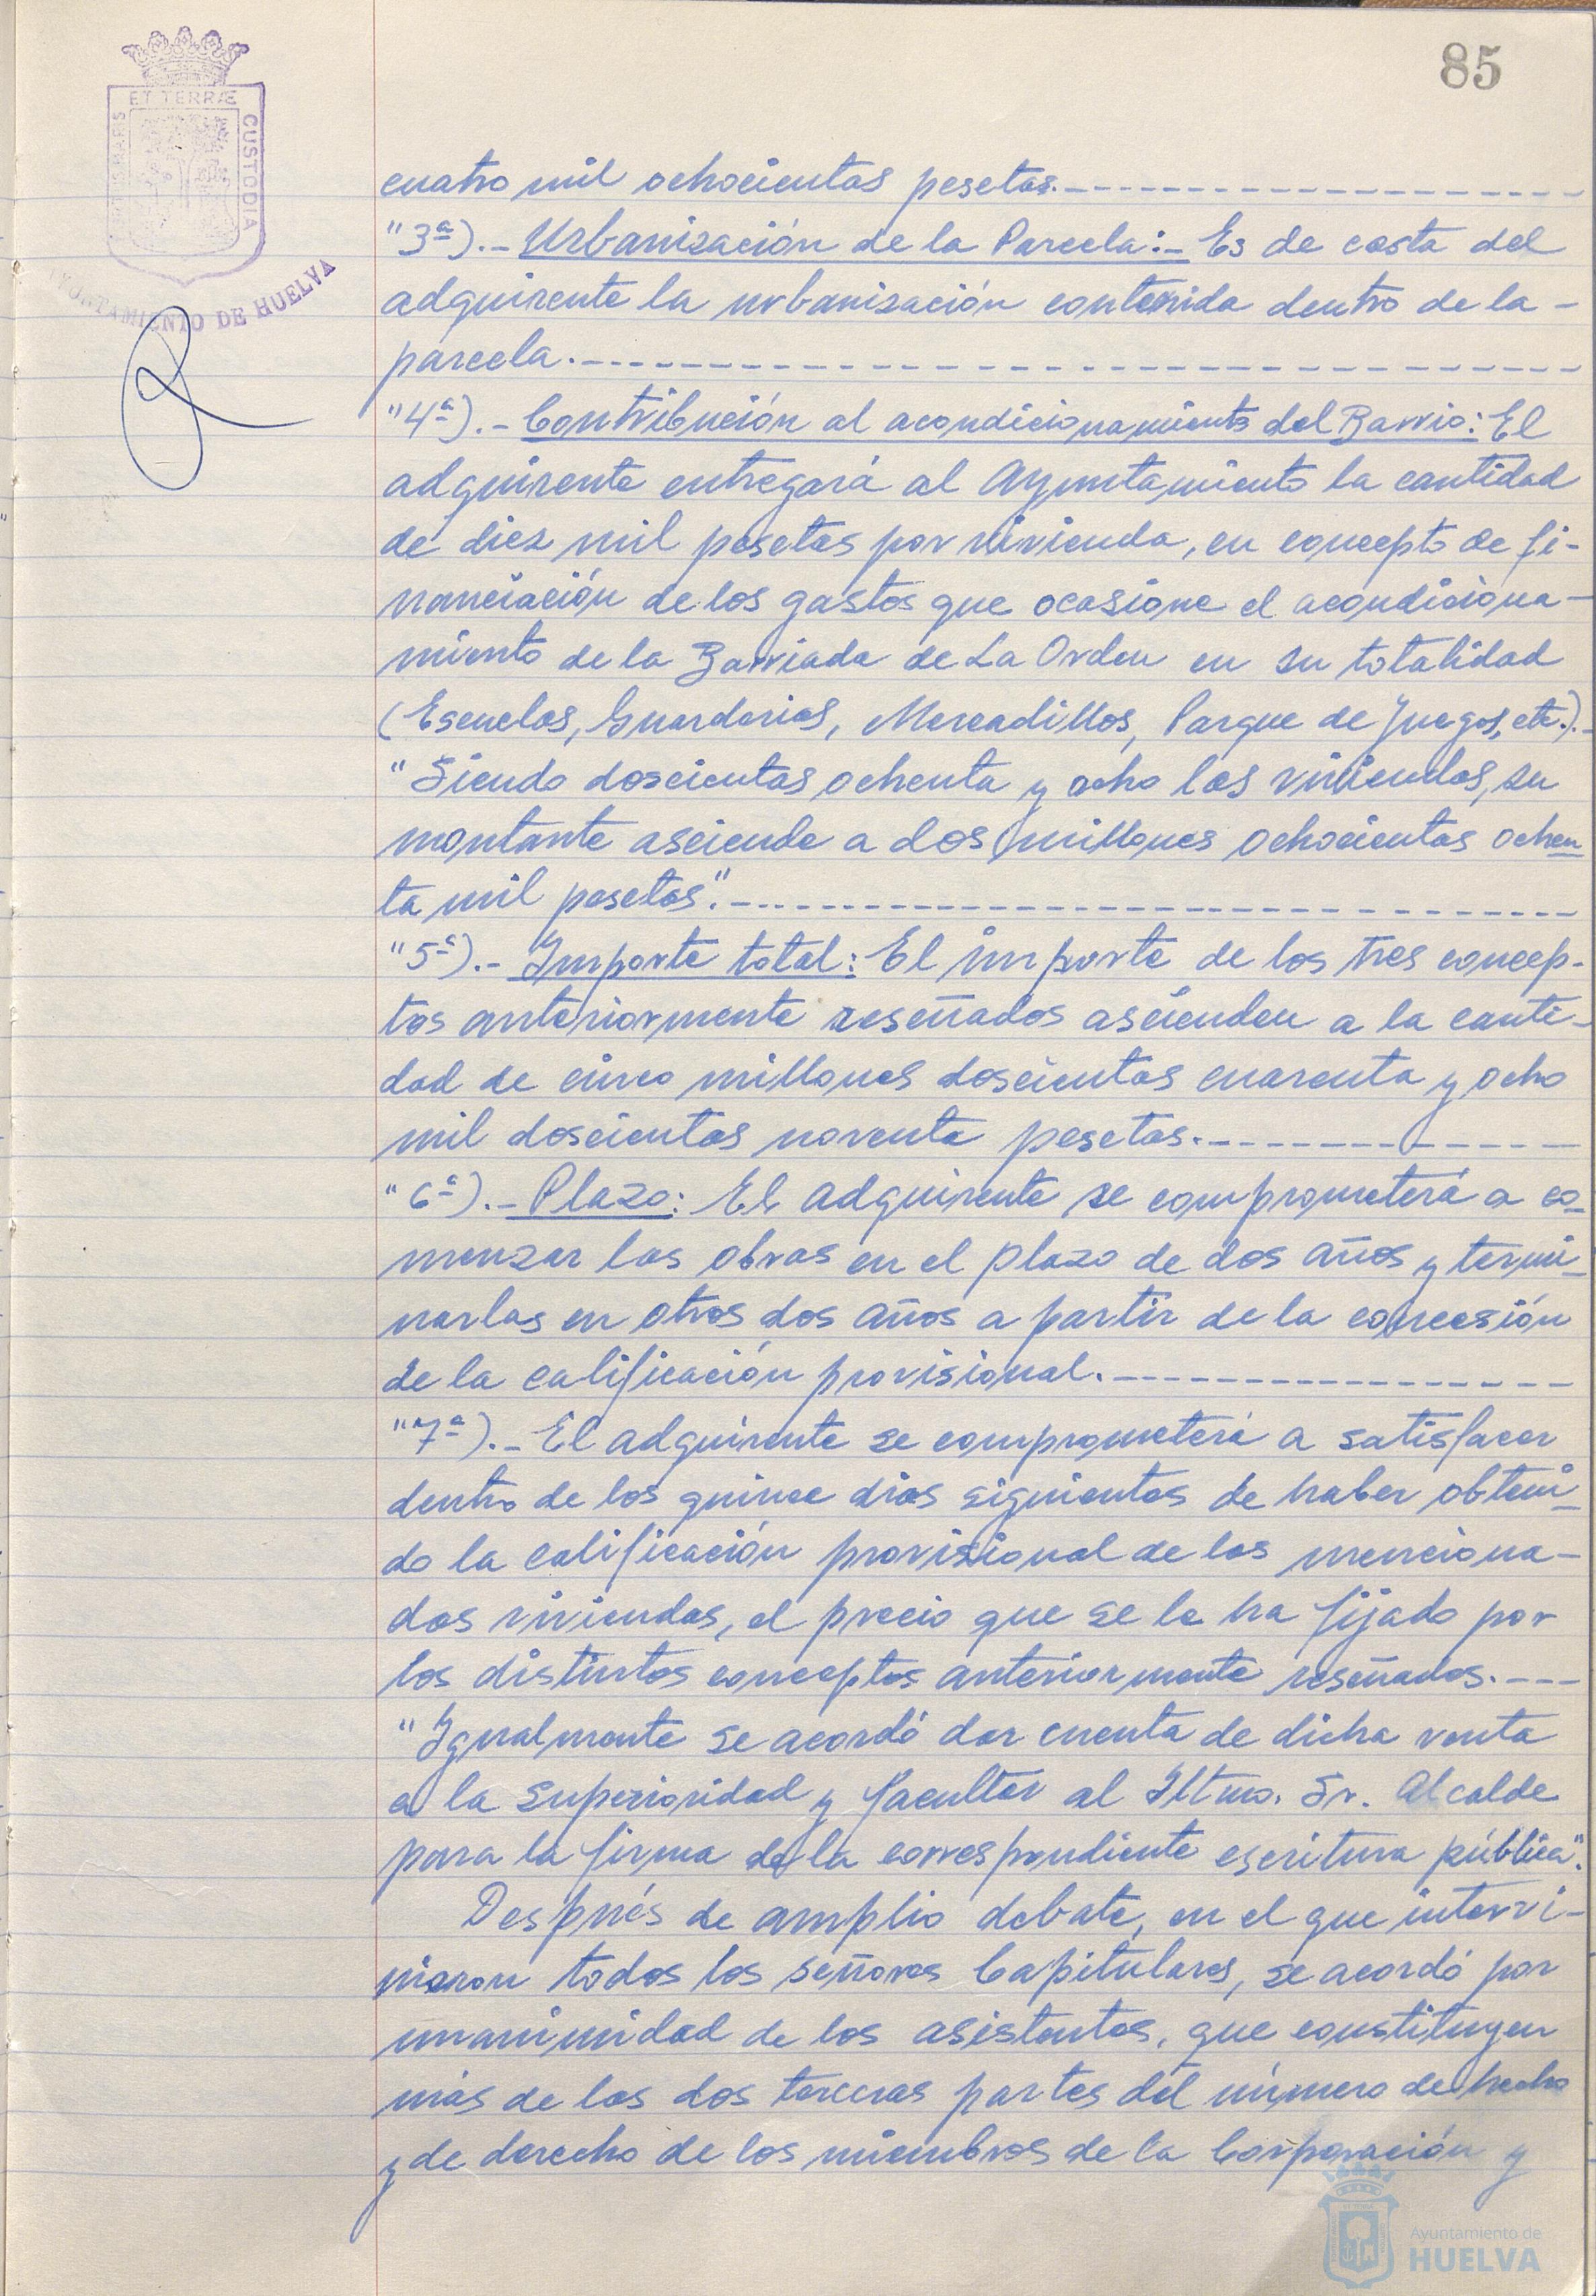 85
ET TERRÆ
CUSTODIA
AYUNTAMIENTO DE HUELVA
cuatro mil ochocientas pesetas.------------------
"3ª).- Urbanización de la Parcela:- Es de costa del
adquirente la urbanización contenida dentro de la -
parcela.------------------------------
"4ª).- Contribución al acondicionamiento del Barrio: El
adquirente entregará al Ayuntamiento la cantidad
de diez mil pesetas por vivienda, en concepto de fi-
nanciación de los gastos que ocasione el acondiciona-
miento de la Barriada de La Orden en su totalidad
(Escuelas, Guarderias, Mercadillos, Parque de Juegos, etc.).-
"Siendo doscientas ochenta y ocho las viviendas, su
montante asciende a dos millones ochocientas ochen
ta mil pesetas".------------------------------
"5ª).- Importe total: El importe de los tres concep-
tos anteriormente reseñados ascienden a la canti-
dad de cinco millones doscientas cuarenta y ocho
mil doscientas noventa pesetas.--------------
"6ª).- Plazo: El adquirente se comprometerá a co-
menzar las obras en el plazo de dos años y termi-
narlas en otros dos años a partir de la concesión
de la calificación provisional.-----------------
"7ª).- El adquirente se comprometerá a satisfacer
dentro de los quince dias siguientes de haber obteni-
do la calificación provisional de las menciona-
das viviendas, el precio que se le ha fijado por
los distintos conceptos anteriormente reseñados.---
"Igualmente se acordó dar cuenta de dicha venta
a la Superioridad y facultar al Iltmo. Sr. Alcalde
para la firma de la correspondiente escritura pública".
Después de amplio debate, en el que intervi-
nieron todos los señores Capitulares, se acordó por
unanimidad de los asistentes, que constituyen
más de las dos terceras partes del número de hecho
y de derecho de los miembros de la Corporación y
Ayuntamiento de
HUELVA